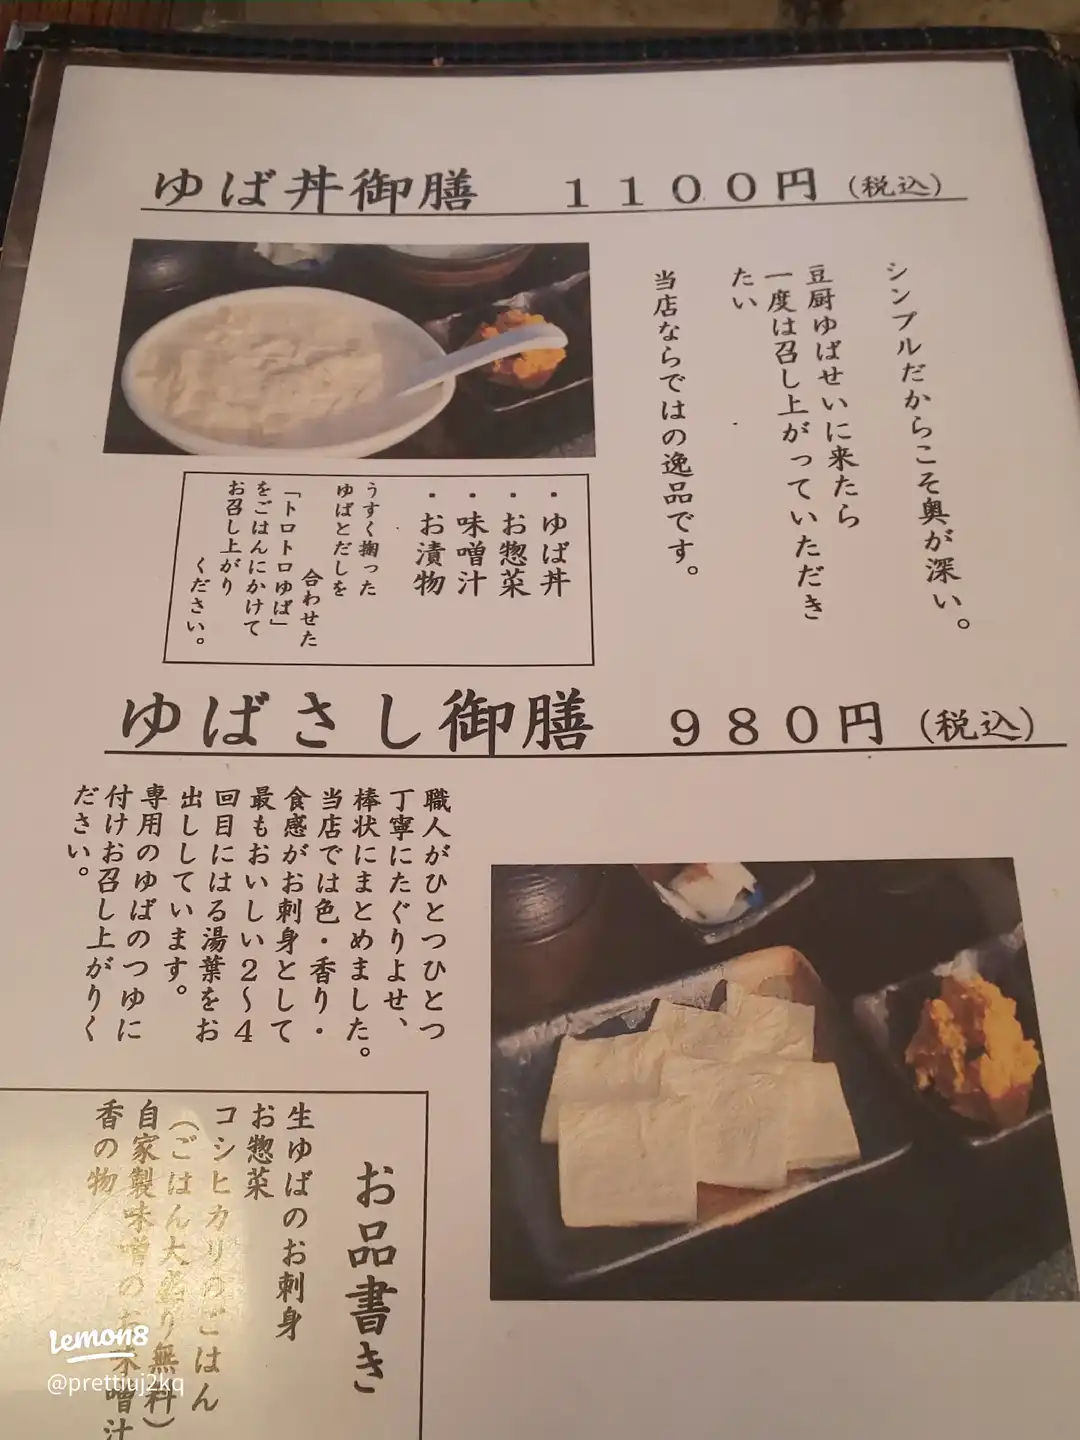 ゆば丼御膳　１１００円（税込）
シンプルだからこそ奥が深い。
豆厨ゆばせいに来たら
一度は召し上がっていただき
たい
当店ならではの逸品です。
・ゆば丼
・お惣菜
・味噌汁
・お漬物
うすく掬った
ゆばとだしを
合わせた
「トロトロゆば」
をごはんにかけて
お召し上がり
ください。
ゆばさし御膳　９８０円（税込）
職人がひとつひとつ
丁寧にたぐりよせ、
棒状にまとめました。
当店では色・香り・
食感がお刺身として
最もおいしい２～４
回目にはる湯葉をお
出ししています。
専用のゆばのつゆに
付けお召し上がりく
ださい。
お品書き
生ゆばのお刺身
お惣菜
コシヒカリのごはん
（ごはん大盛り無料）
自家製味噌のお味噌汁
香の物
lemon8
@prettiuj2kq